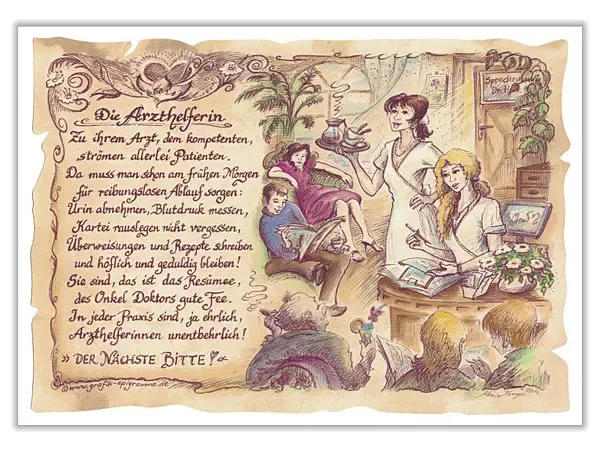 Die Arzthelferin
Zu ihrem Arzt, dem kompetenten,
strömen allerlei Patienten.
Da muss man schon am frühen Morgen
für reibungslosen Ablauf sorgen:
Urin abnehmen, Blutdruck messen,
Kartei rauslegen nicht vergessen,
Überweisungen und Rezepte schreiben
und höflich und geduldig bleiben!
Sie sind, das ist das Resümee,
des Onkel Doktors gute Fee.
In jeder Praxis sind, ja ehrlich,
Arzthelferinnen unentbehrlich!
» DER NÄCHSTE BITTE «
©www.grafik-epigramme.de
Dr.